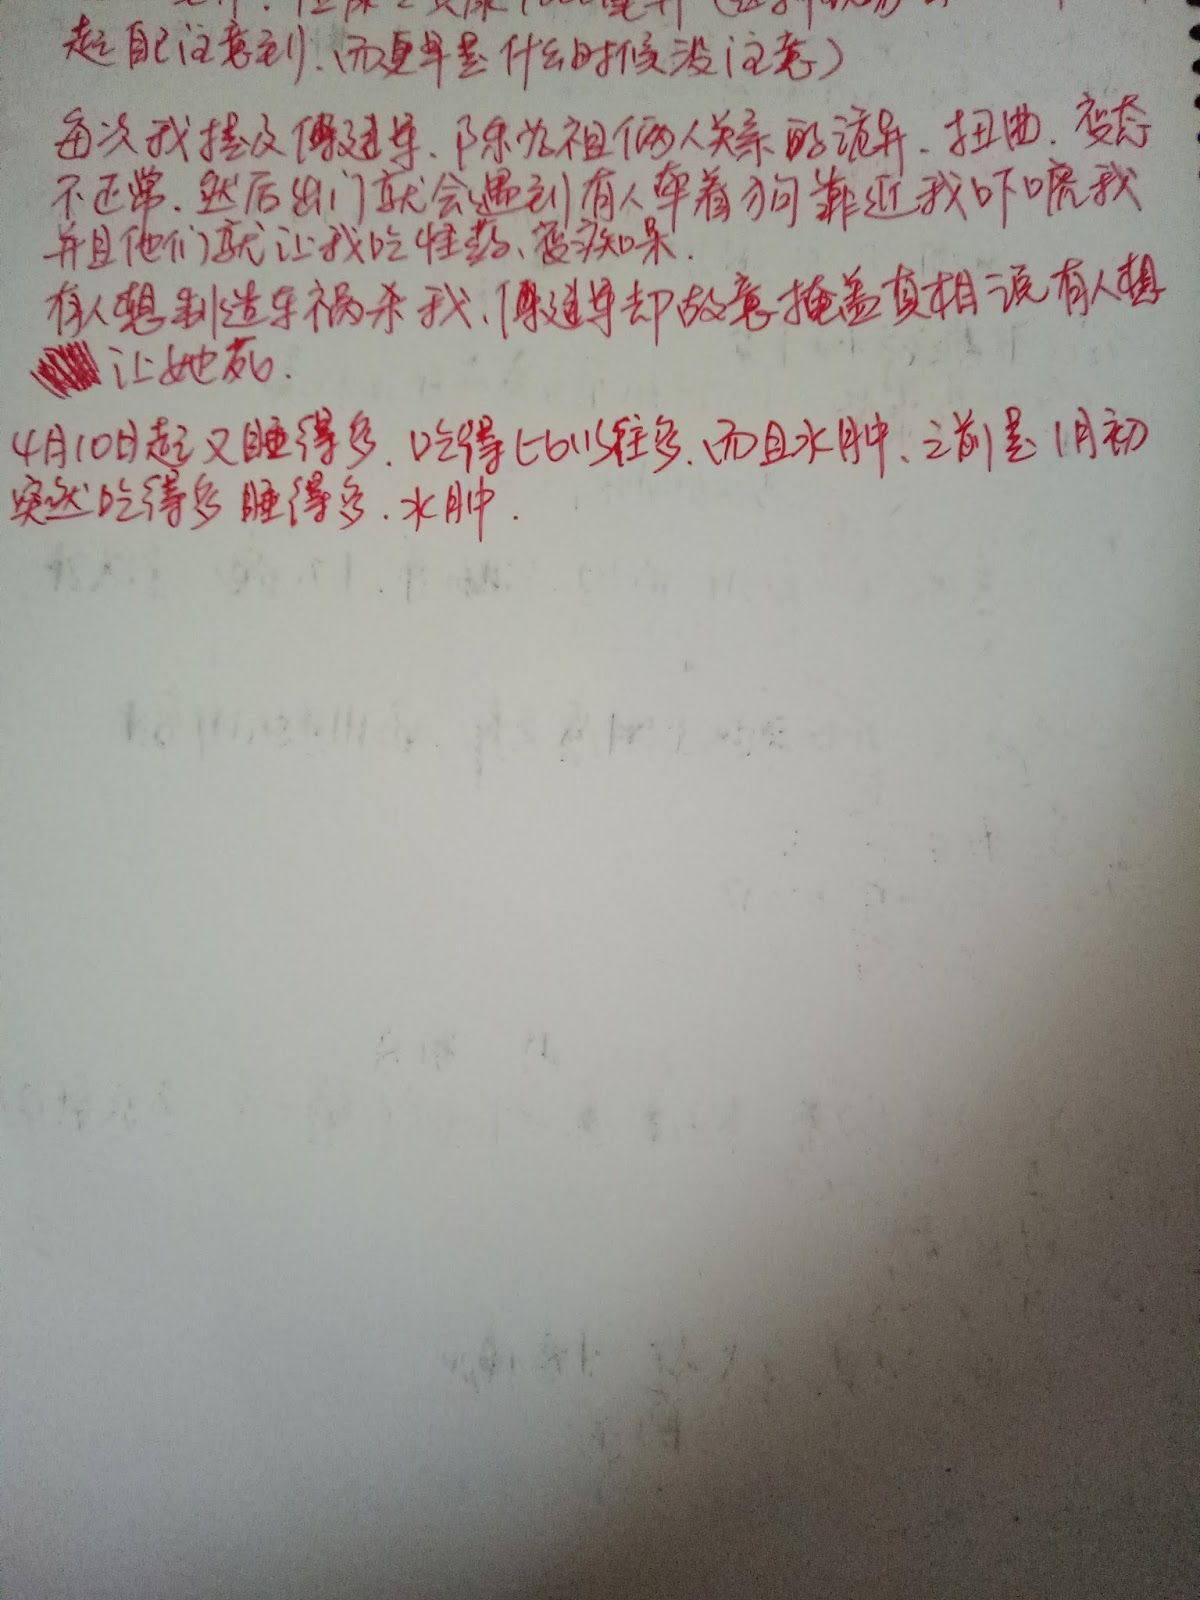 起自己注意到、而更早是什么时候没注意）
每次我提及傅建华、陈为祖俩人关系的诡异、扭曲、变态
不正常、然后出门就会遇到有人牵着狗靠近我吓唬我
并且他们就让我吃性药、变痴呆.
有人想制造车祸杀我、傅建华却故意掩盖真相说有人想
让她死.
4月10日起又睡得多、吃得比以往多、而且水肿、之前是1月初
突然吃得多睡得多、水肿.